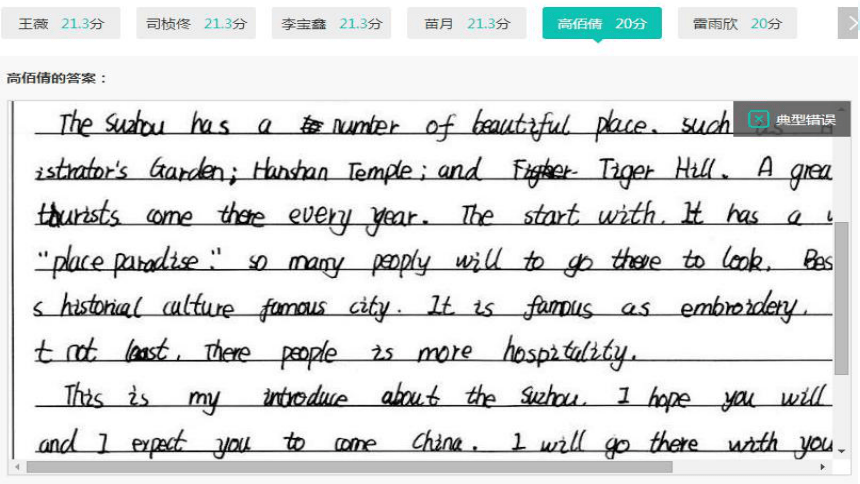 王薇 21.3分 司桢佟 21.3分 李宝鑫 21.3分 苗月 21.3分 高佰倩 20分 雷雨欣 20分
高佰倩的答案：
典型错误
The Suzhou has a number of beautiful place. such
istrator's Garden; Hanshan Temple; and Tiger Hill. A grea
thurists come there every year. The start with. It has a
"place paradise." so many peoply will to go there to look. Bes
s historical culture famous city. It is famous as embroidery.
t not least. There people is more hospitality.
This is my introduce about the Suzhou. I hope you will
and I expect you to come China. I will go there with you